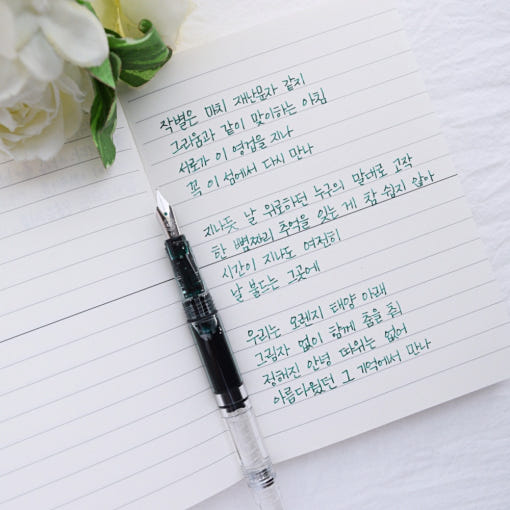 작별은 마치 재난문자 같지
그리움과 같이 맞이하는 아침
서로가 이 영겁을 지나
꼭 이 섬에서 다시 만나
지나듯 날 위로하던 누구의 말대로 고작
한 뼘짜리 추억을 잊는 게 참 쉽지 않아
시간이 지나도 여전히
날 붙드는 그곳에
우리는 오렌지 태양 아래
그림자 없이 함께 춤을 춰
정해진 안녕 따위는 없어
아름다웠던 그 기억에서 만나